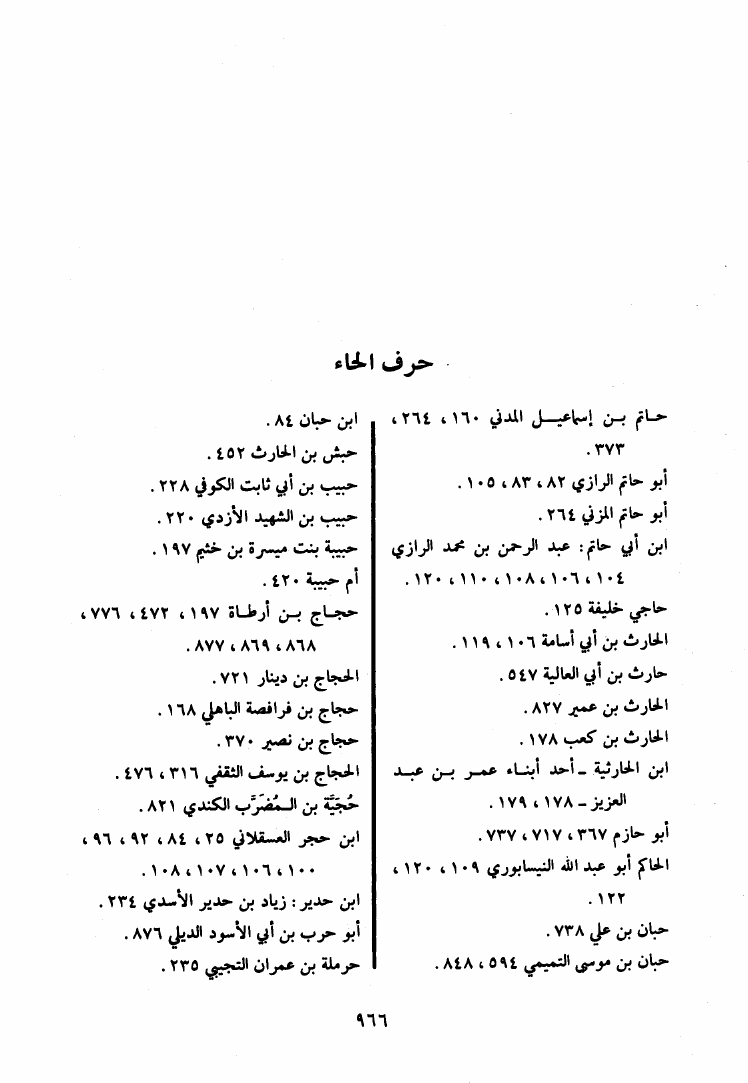 حرف الحاء
حاتم بن إسماعيل المدني ١٦٠ ، ٢٦٤ ،
٣٧٣ .
أبو حاتم الرازي ٨٢ ، ٨٣ ، ١٠٥ .
أبو حاتم المزني ٢٦٤ .
ابن أبي حاتم : عبد الرحمن بن محمد الرازي
١٠٤ ، ١٠٦ ، ١٠٨ ، ١١٠ ، ١٢٠ .
حاجي خليفة ١٢٥ .
الحارث بن أبي أسامة ١٠٦ ، ١١٩ .
حارث بن أبي العالية ٥٤٧ .
الحارث بن عمير ٨٢٧ .
الحارث بن كعب ١٧٨ .
ابن الحارثية - أحد أبناء عمر بن عبد
العزيز - ١٧٨ ، ١٧٩ .
أبو حازم ٣٦٧ ، ٧١٧ ، ٧٣٧ .
الحاكم أبو عبد الله النيسابوري ١٠٩ ، ١٢٠ ،
١٢٢ .
حبان بن علي ٧٣٨ .
حبان بن موسى التميمي ٥٩٤ ، ٨٤٨ .
ابن حبان ٨٤ .
حبش بن الحارث ٤٥٢ .
حبيب بن أبي ثابت الكوفي ٢٢٨ .
حبيب بن الشهيد الأزدي ٢٢٠ .
حبيبة بنت ميسرة بن خثيم ١٩٧ .
أم حبيبة ٤٢٠ .
حجاج بن أرطاة ١٩٧ ، ٤٧٢ ، ٧٧٦ ،
٨٦٨ ، ٨٦٩ ، ٨٧٧ .
الحجاج بن دينار ٧٢١ .
حجاج بن فرافصة الباهلي ١٦٨ .
حجاج بن نصير ٣٧٠ .
الحجاج بن يوسف الثقفي ٣١٦ ، ٤٧٦ .
حُجَيَّة بن الـمُضَرَّب الكندي ٨٢١ .
ابن حجر العسقلاني ٢٥ ، ٨٤ ، ٩٢ ، ٩٦ ،
١٠٠ ، ١٠٦ ، ١٠٧ ، ١٠٨ .
ابن حدير : زياد بن حدير الأسدي ٢٣٤ .
أبو حرب بن أبي الأسود الديلي ٨٧٦ .
حرملة بن عمران التجيبي ٢٣٥ .
٩٦٦